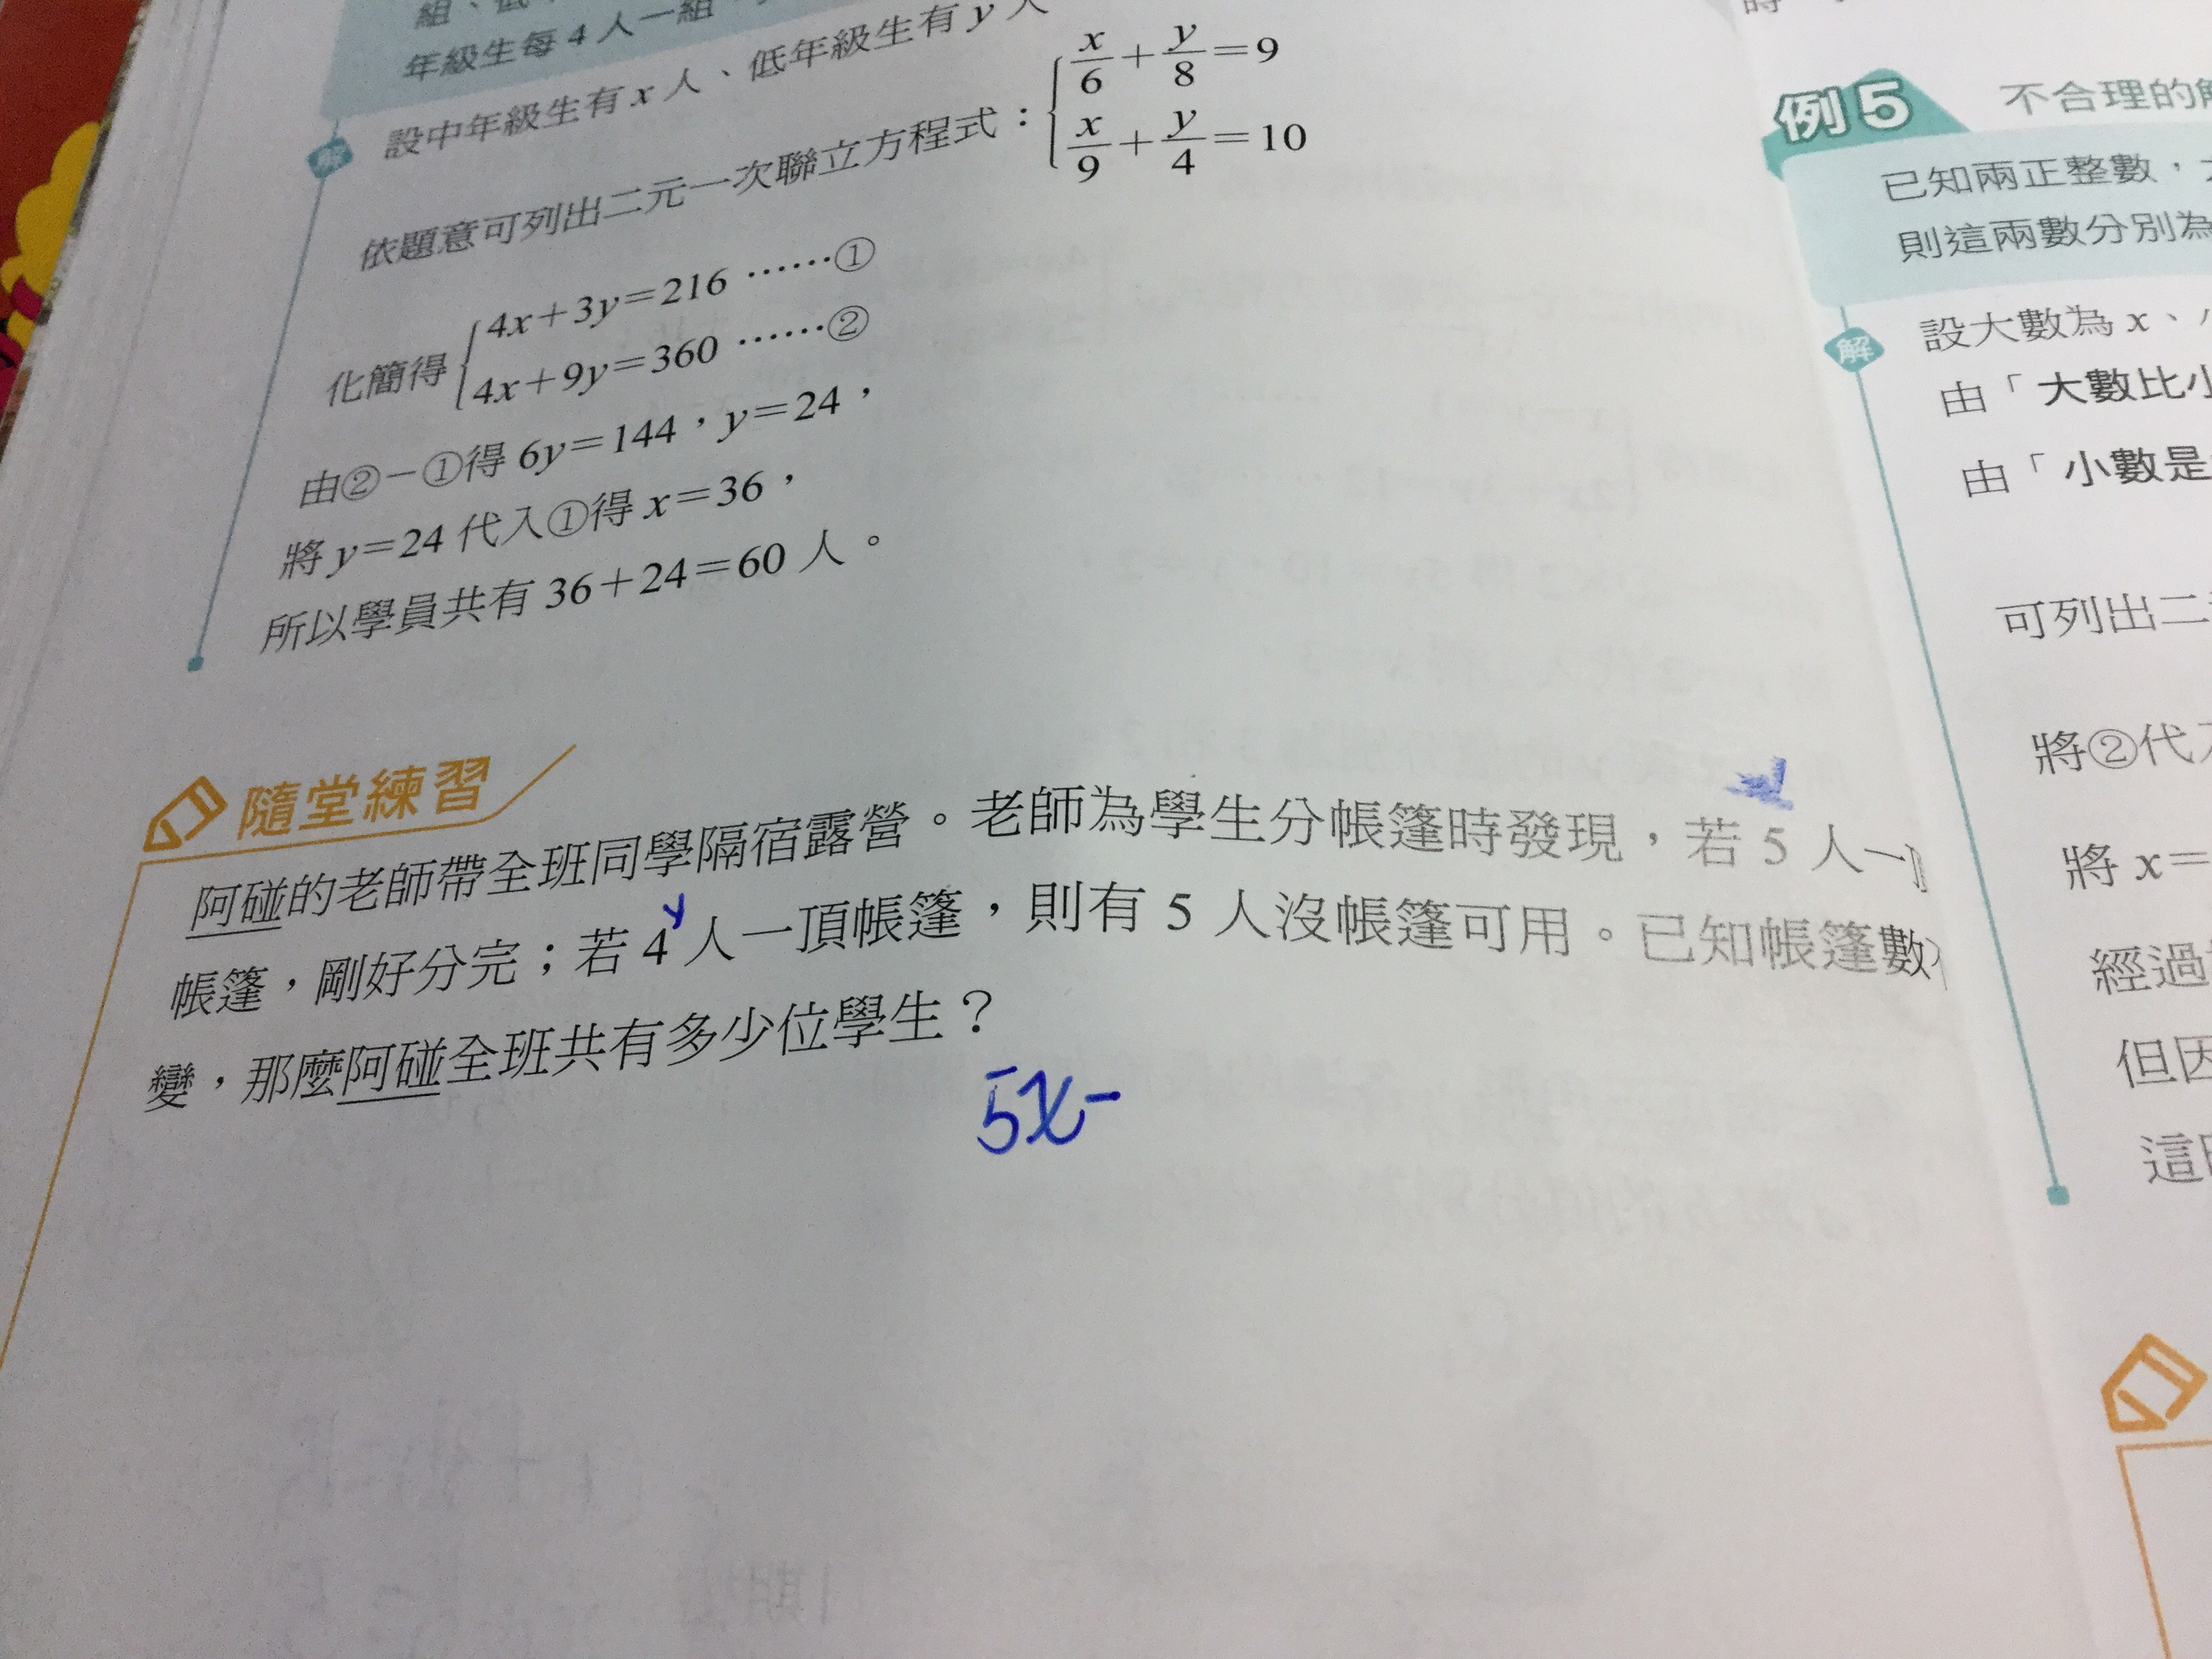 組、低
年級生每 4 人一組
設中年級生有 x 人、低年級生有 y 人
依題意可列出二元一次聯立方程式：{x/6+y/8=9
x/9+y/4=10
化簡得{4x+3y=216 ……①
4x+9y=360 ……②
由②－①得 6y=144，y=24，
將 y=24 代入①得 x=36，
所以學員共有 36+24=60 人。
隨堂練習
阿碰的老師帶全班同學隔宿露營。老師為學生分帳篷時發現，若 5 人一
帳篷，剛好分完；若 4 y 人一頂帳篷，則有 5 人沒帳篷可用。已知帳篷數
變，那麼阿碰全班共有多少位學生？
5x-
時
例 5 不合理的
已知兩正整數，
則這兩數分別為
解 設大數為 x、
由「大數比小
由「小數是
可列出二
將②代
將 x=
經過
但因
這